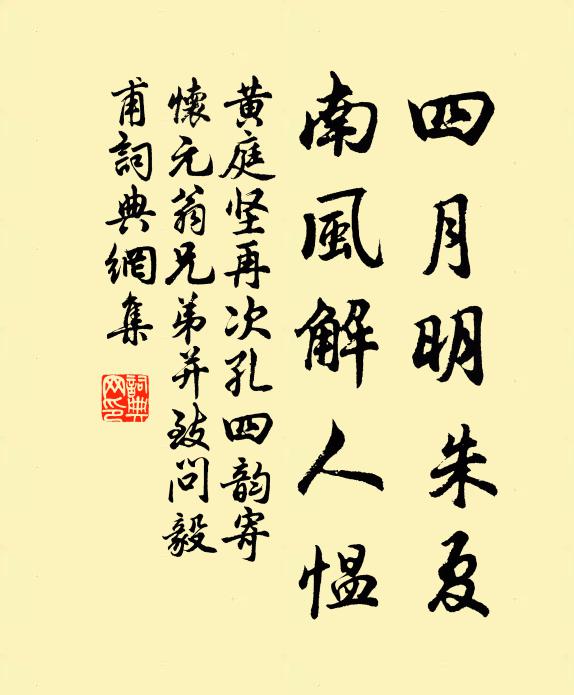 四月明朱夏
南風解人愠
黄庭坚再次孔四韵寄
懷元翁兄弟并致問毅
甫詞典網集
詞典
网印